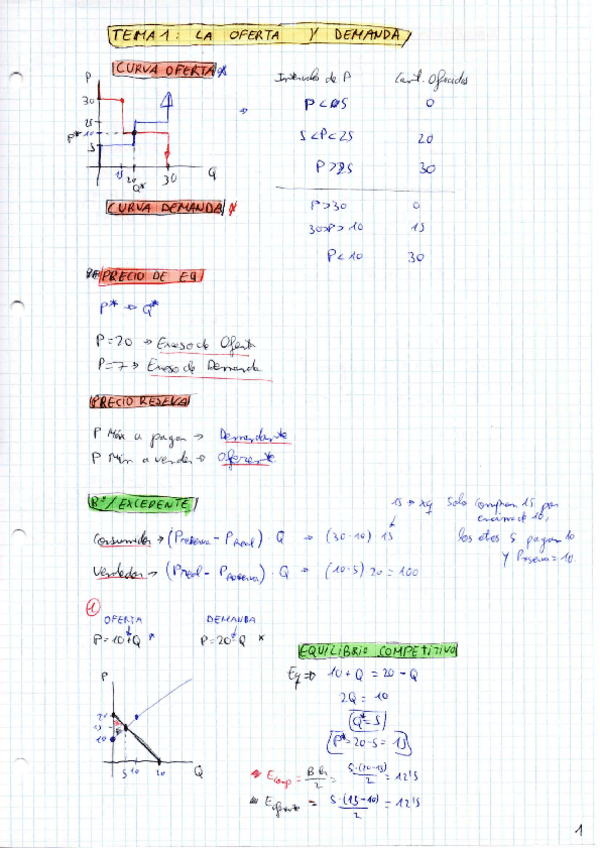 TEMA 1: LA OFERTA Y DEMANDA
CURVA OFERTA
P
30
25
P* 10
5
15 20 30 Q
Q*
Intervalo de P Cant. Ofrecidas
P < 5 0
5 < P < 25 20
P > 25 30
CURVA DEMANDA
P > 30 0
30 > P > 10 15
P < 10 30
PRECIO DE EQ
P* → Q*
P = 20 → Exceso de Oferta
P = 7 → Exceso de Demanda
PRECIO RESERVA
P Máx a pagar → Demandante
P Mín a vender → Oferente
Bº / EXCEDENTE
15 → xq Solo compran 15 por
encima de 10,
los otros 5 pagan 10
y Preserva = 10.
Consumidor → (Preserva - Preal) · Q → (30-10) · 15
Vendedor → (Preal - Preserva) · Q → (10-5) 20 = 100
1
OFERTA DEMANDA
P = 10 + Q P = 20 - Q
P
20
15
10
5 10 20 Q
EQUILIBRIO COMPETITIVO
Eq ⇒ 10 + Q = 20 - Q
2Q = 10
Q* = 5
P* = 20 - 5 = 15
E comp = B·h/2 = 5·(20-15)/2 = 12'5
E oferente = 5·(15-10)/2 = 12'5
1